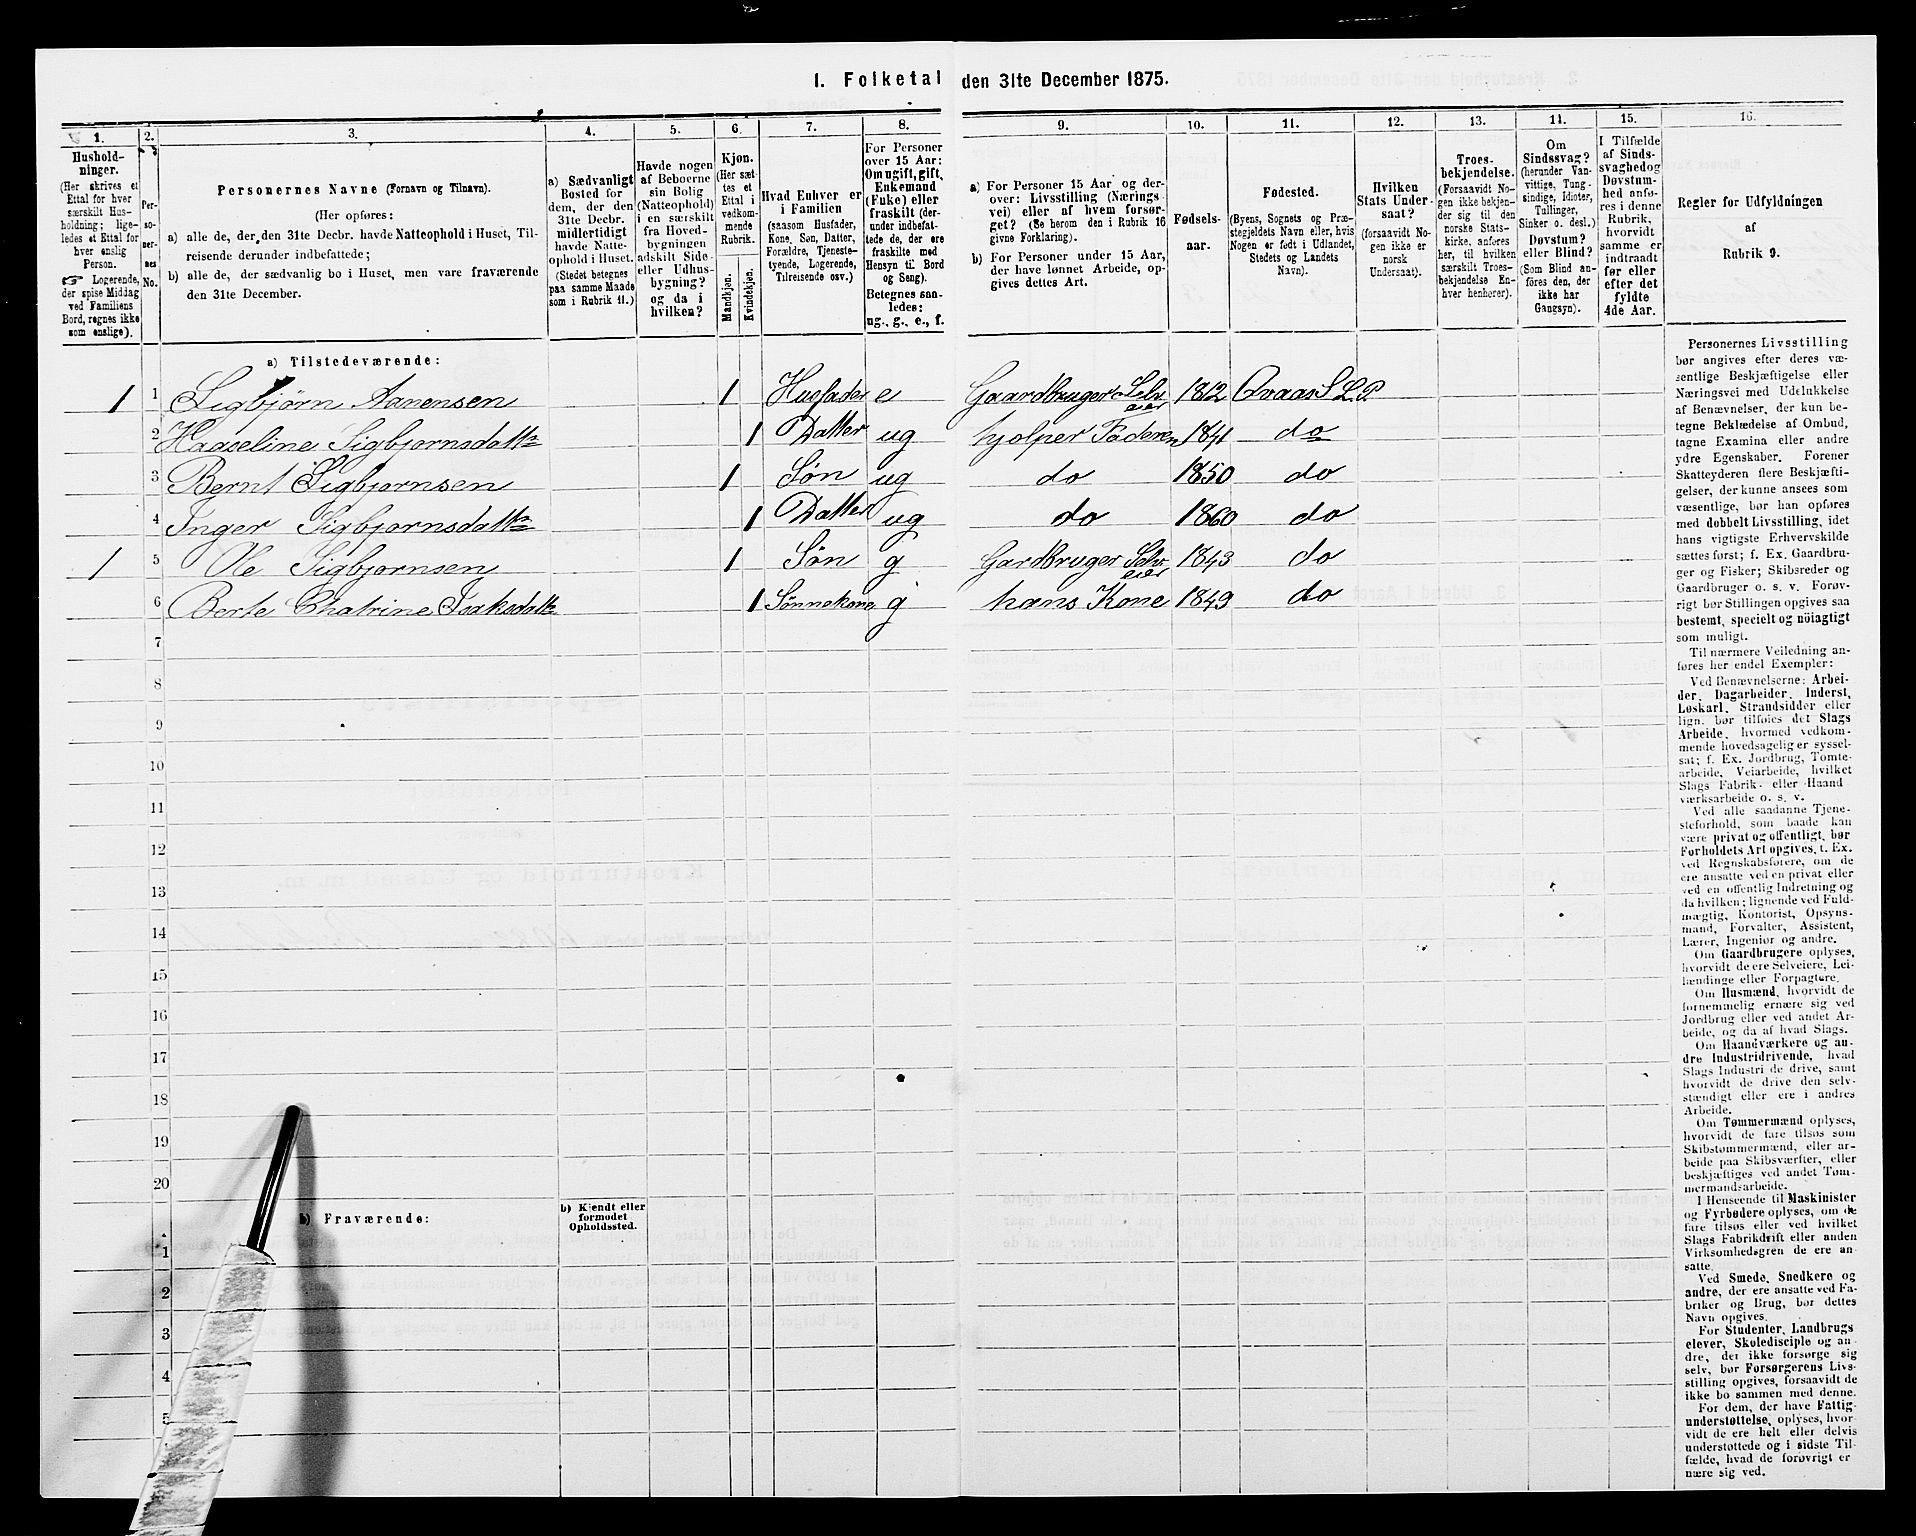 1. Folketal den 31te December 1875.
1.
Hushold-
ninger.
(Her skrives et
Ettal for hver
særskilt Hus-
holdning; lige-
ledes et Ettal for
hver enslig
Person.
☞ Logerende,
der spise Middag
ved Familiens
Bord, regnes ikke
som enslige).
2.
Per-
so-
ner-
nes
No.
3.
Personernes Navne (Fornavn og Tilnavn).
(Her opføres:
a) alle de, der den 31te Decbr. havde Natteophold i Huset, Til-
reisende derunder indbefattede;
b) alle de, der sædvanlig bo i Huset, men vare fraværende
den 31te December.
4.
a) Sædvanligt
Bosted for
dem, der den
31te Decbr.
midlertidigt
havde Natte-
ophold i Huset.
(Stedet betegnes
paa samme Maade
som i Rubrik 11.)
5.
Havde nogen
af Beboerne
sin Bolig
(Natteophold)
i en særskilt
fra Hoved-
bygningen
adskilt Side-
eller Udhus-
bygning?
og da i
hvilken?
6.
Kjøn.
(Her sæt-
tes et
Ettal i
vedkom-
mende
Rubrik.
Mandkjøn.
Kvindekjøn.
7.
Hvad Enhver er
i Familien
(saasom Husfader,
Kone, Søn, Datter,
Forældre, Tjeneste-
tyende, Logerende,
Tilreisende osv.)
8.
For Personer
over 15 Aar:
Om ugift, gift,
Enkemand
(Enke) eller
fraskilt (der-
under indbefat-
tede de, der ere
fraskilte med
Hensyn til Bord
og Seng).
Betegnes saa-
ledes:
ug., g., e., f.
9.
a) For Personer 15 Aar og der-
over: Livsstilling (Nærings-
vei) eller af hvem forsør-
get? (Se herom den i Rubrik 16
givne Forklaring).
b) For Personer under 15 Aar,
der have lønnet Arbeide, op-
gives dettes Art.
10.
Fødsels-
aar.
11.
Fødested.
(Byens, Sognets og Præ-
stegjeldets Navn eller, hvis
Nogen er født i Udlandet,
Stedets og Landets
Navn).
12.
Hvilken
Stats Under-
saat?
(forsaavidt No-
gen ikke er
norsk
Undersaat).
13.
Troes-
bekjendelse.
(Forsaavidt No-
gen ikke bekjen-
der sig til den
norske Stats-
kirke, anføres
her, til hvilken
særskilt Troes-
bekjendelse En-
hver henhører).
14.
Om
Sindssvag?
(herunder Van-
vittige, Tung-
sindige, Idioter,
Tullinger,
Sinker o. desl.)
Døvstum?
eller Blind?
(Som Blind an-
føres den, der
ikke har
Gangsyn).
15.
I Tilfælde
af Sinds-
svaghed og
Døvstum-
hed anfø-
res i denne
Rubrik,
hvorvidt
samme er
indtraadt
før eller
efter det
fyldte
4de Aar.
16.
Regler for Udfyldningen
af
Rubrik 9.
a) Tilstedeværende:
1 1 Sigbjörn Aanensen 1 Husfader e Gaardbruger Selv eier 1812 Qvaas S L P
2 Haaseline Sigbjørnsdattr 1 Datter ug hjelper Faderen 1841 do
3 Bernt Sigbjørnsen 1 Søn ug do 1850 do
4 Inger Sigbjørnsdattr 1 Datter ug do 1860 do
1 5 Ole Sigbjørnsen 1 Søn g Gardbruger Selv eier 1843 do
6 Berte Chatrine Isaksdattr 1 Sønnekone g hans Kone 1849 do
7
8
9
10
11
12
13
14
15
16
17
18
19
20
b) Fraværende:
b) Kjendt eller
formodet
Opholdssted.
1
2
3
4
5
Personernes Livsstilling
bør angives efter deres væ-
sentlige Beskjæftigelse eller
Næringsvei med Udelukkelse
af Benævnelser, der kun be-
tegne Beklædelse af Ombud,
tagne Examina eller andre
ydre Egenskaber. Forener
Skatteyderen flere Beskjæfti-
gelser, der kunne ansees som
væsentlige, bør han opføres
med dobbelt Livsstilling, idet
hans vigtigste Erhvervskilde
sættes først; f. Ex. Gaardbru-
ger og Fisker; Skibsreder og
Gaardbruger o. s. v. Forøv-
rigt bør Stillingen opgives saa
bestemt, specielt og nöiagtigt
som muligt.
Til nærmere Veiledning an-
føres her endel Exempler:
Ved Benævnelserne: Arbei-
der, Dagarbeider, Inderst,
Løskarl, Strandsidder eller
lign. bør tilføies det Slags
Arbeide, hvormed vedkom-
mende hovedsagelig er syssel-
sat; f. Ex. Jordbrug, Tomte-
arbeide, Veiarbeide, hvilket
Slags Fabrik- eller Haand
værksarbeide o. s. v.
Ved alle saadanne Tjene-
steforhold, som baade kan
være privat og offentligt, bør
Forholdets Art opgives, t. Ex.
ved Regnskabsførere, om de
ere ansatte ved en privat eller
ved en offentlig Indretning og
da hvilken; lignende ved Fuld-
mægtig, Kontorist, Opsyns-
mand, Forvalter, Assistent,
Lærer, Ingeniør og andre.
Om Gaardbrugere oplyses,
hvorvidt de ere Selveiere, Lei-
lændinge eller Forpagtere.
Om Husmænd, hvorvidt de
fornemmelig ernære sig ved
Jordbrug eller ved andet Ar-
beide, og da af hvad Slags.
Om Haandværkere og an-
dre Industridrivende, hvad
Slags Industri de drive, samt
hvorvidt de drive den selv-
stændigt eller ere i andres
Arbeide.
Om Tømmermænd oplyses,
hvorvidt de fare tilsøs som
Skibstømmermænd, eller ar-
beide paa Skibsværfter, eller
beskjæftiges ved andet Tøm-
mermandsarbeide.
I Henseende til Maskinister
og Fyrbødere oplyses, om de
fare tilsøs eller ved hvilket
Slags Fabrikdrift eller anden
Virksomhedsgren de ere an-
satte.
Ved Smede, Snedkere og
andre, der ere ansatte ved Fa-
briker og Brug, bør dettes
Navn opgives.
For Studenter, Landbrugs
elever, Skoledisciple og an-
dre, der ikke forsørge sig
selv, bør Forsørgerens Livs-
stilling opgives, forsaavidt de
ikke bo sammen med denne.
For dem, der have Fattig-
understøttelse, oplyses, hvor-
vidt de ere helt eller delvis
understøttede og i sidste Til-
fælde, hvad de forøvrigt er
nære sig ved.